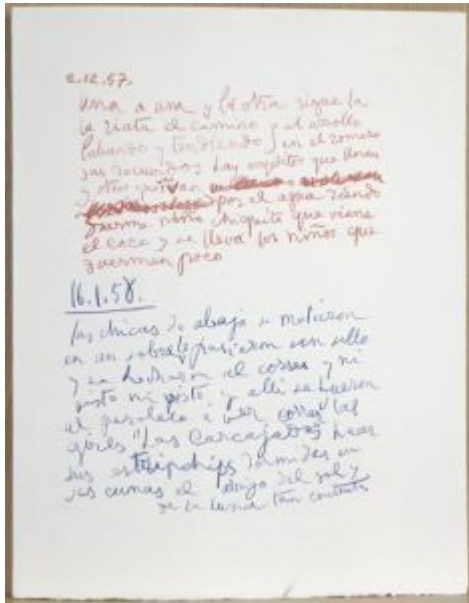 2.12.57.
una a una y la otra sigue la
la riata el camino y el arrollo
labando y tendiendo en el romero
sus recuerdos hay angelitos que lloran
y otros que van
por el agua riendo
duerme niño chiquito que viene
el coco y se lleva los niños que
duermen poco
16.1.58.
las chicas de abajo se metieron
en un sobre le pusieron un sello
y se hecharon al correo y ni
gusto ni gusto y alli se fueron
al a ver
"las Carcajadas"
sus dormidas en
sus cunas el abajo del sol y
de la luna tan contentas